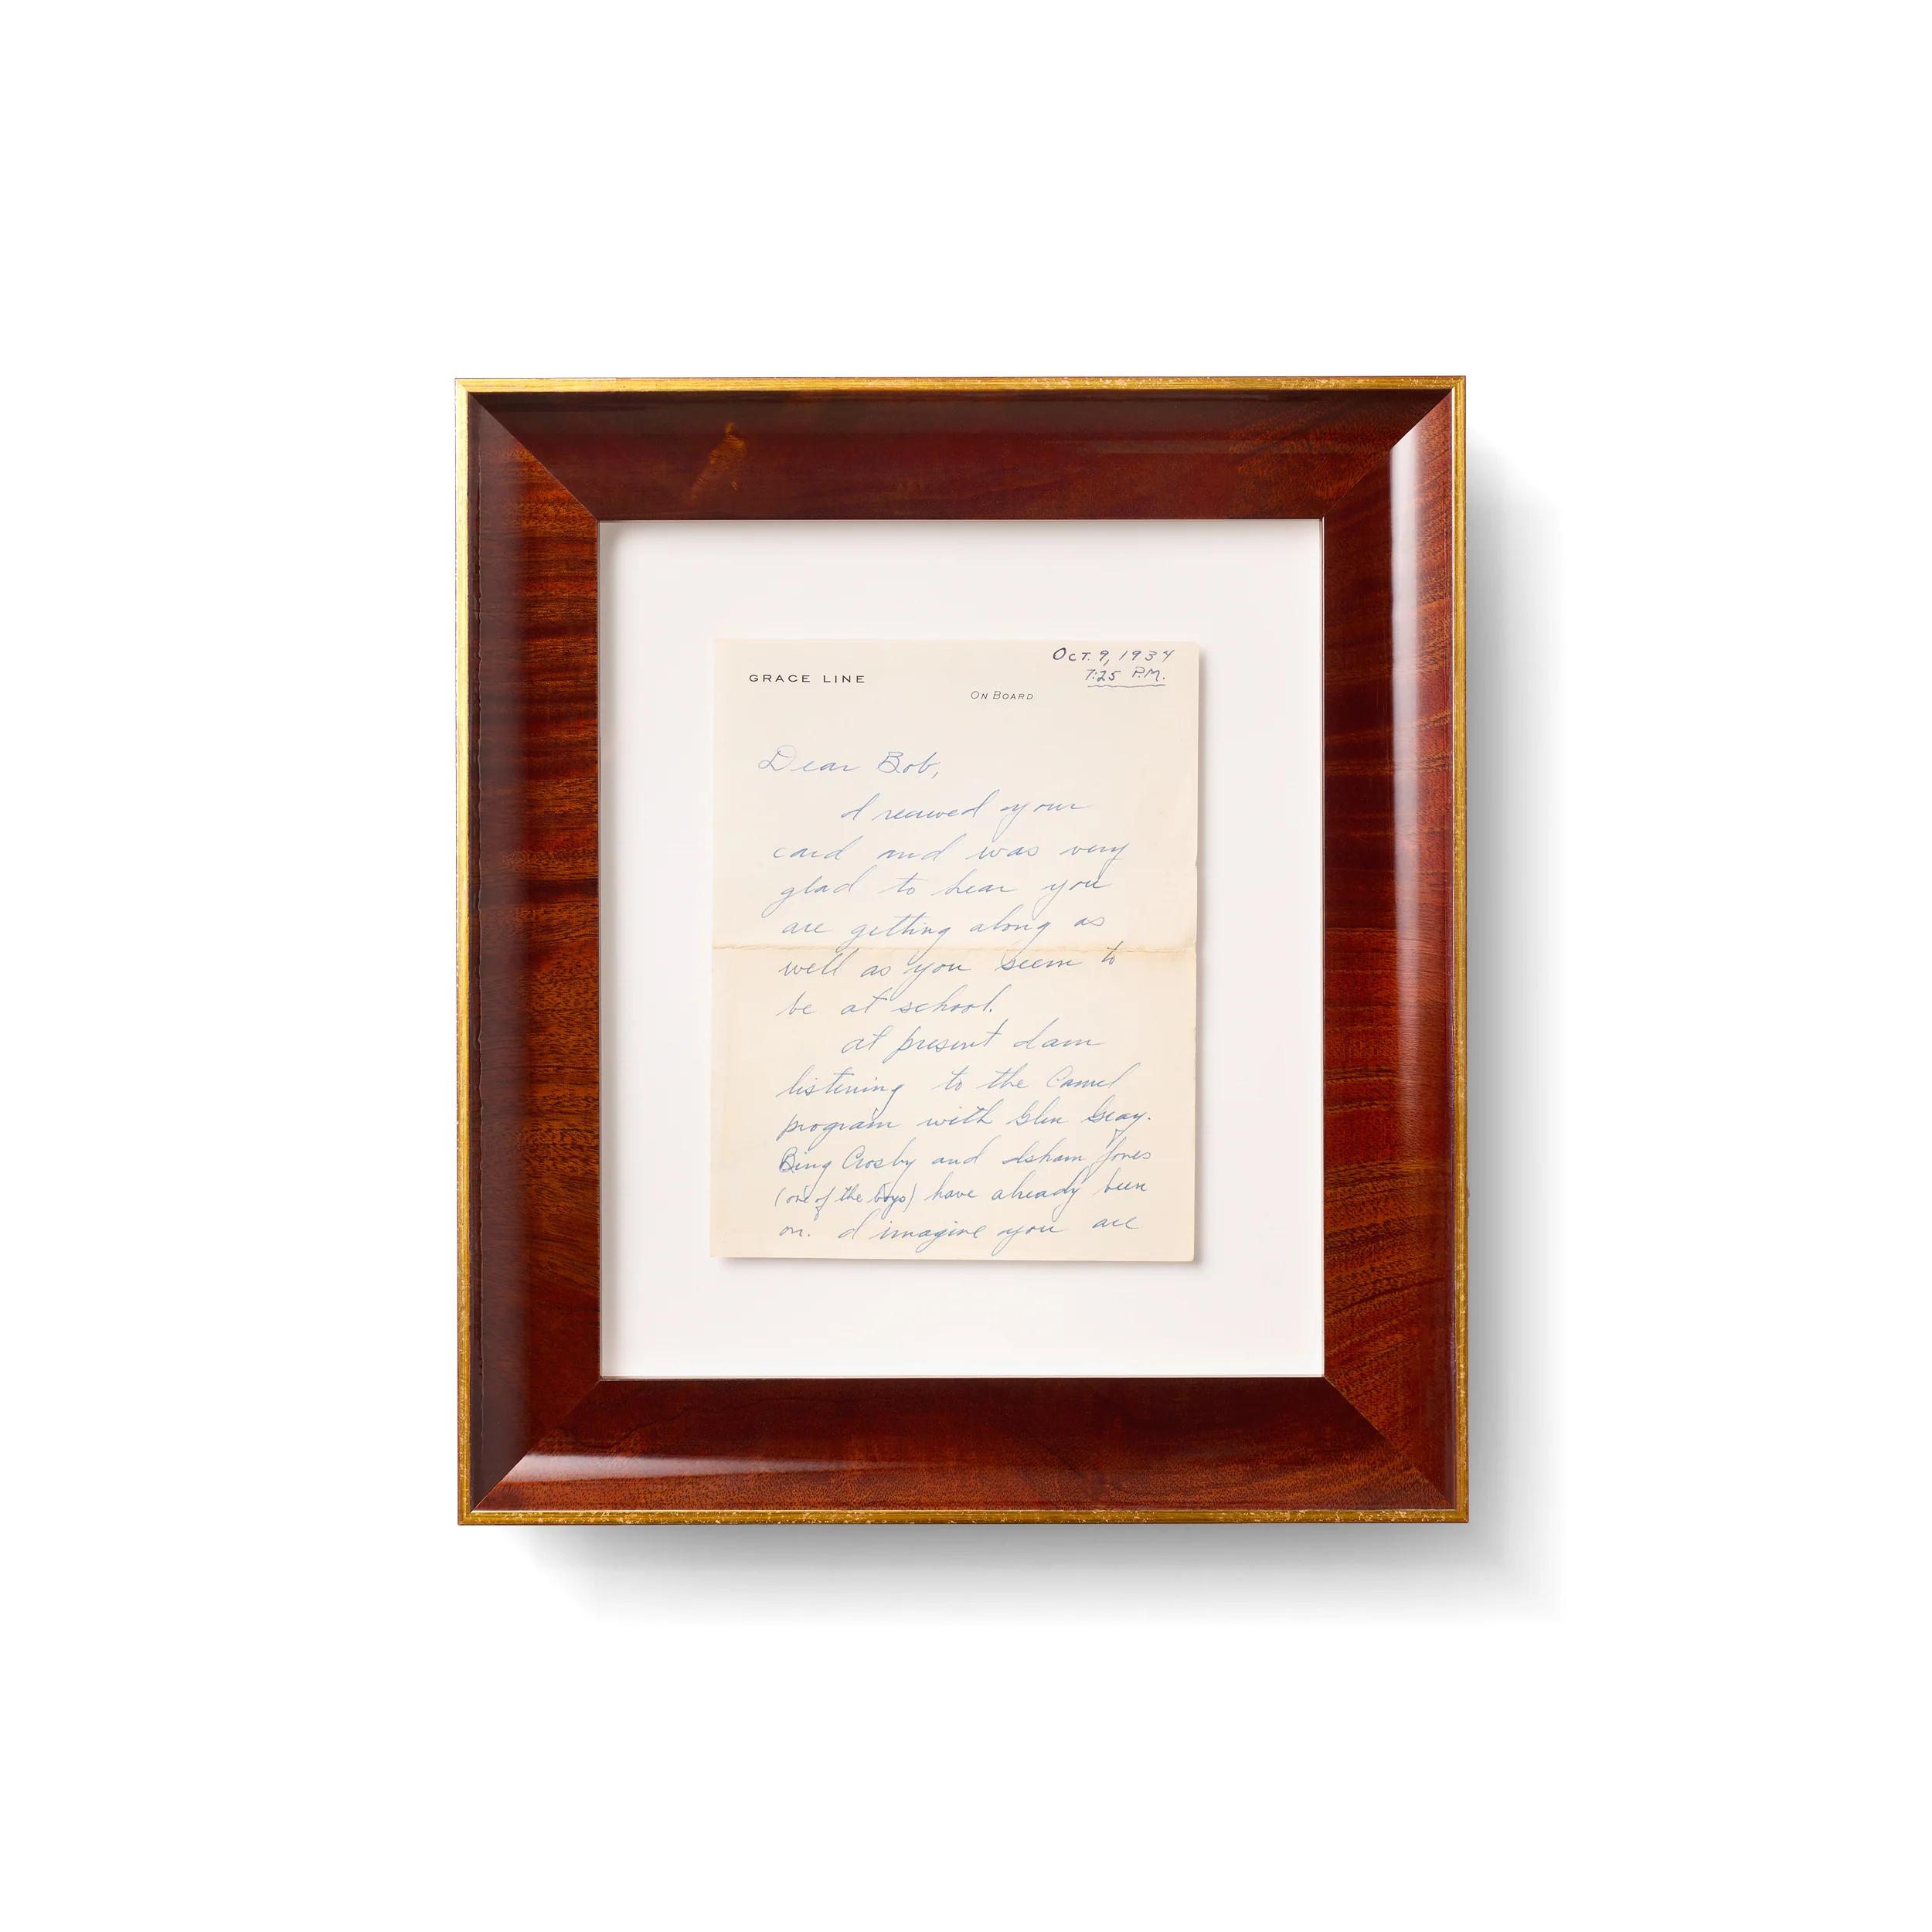 GRACE LINE
ON BOARD
OCT. 9, 1934
7:25 P.M.
Dear Bob,
I received your
card and was very
glad to hear you
are getting along as
well as you seem to
be at school.
At present I am
listening to the Camel
program with Glen Gray.
Bing Crosby and Isham Jones
(one of the boys) have already been
on. I imagine you are